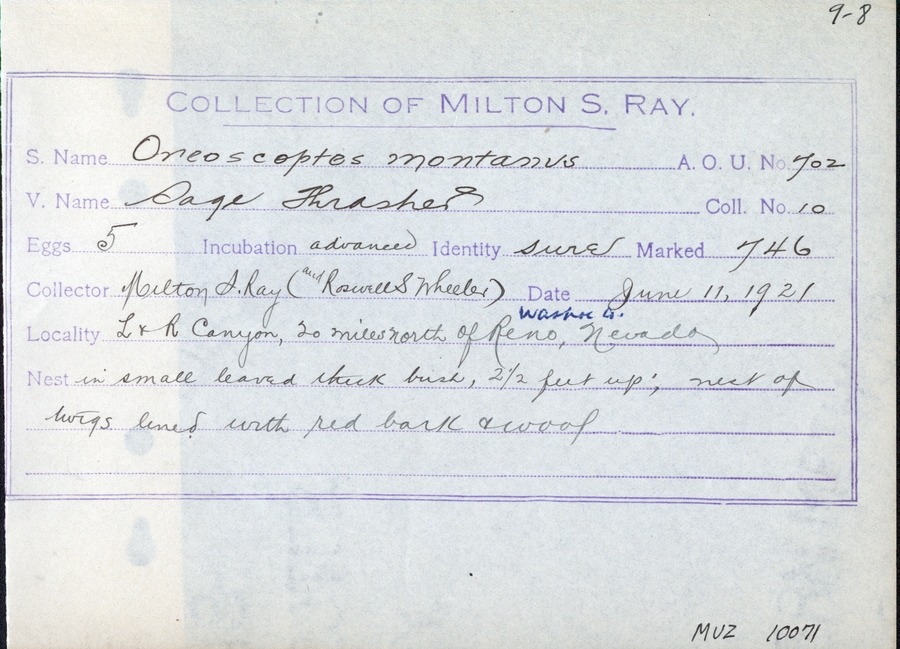 9-8
COLLECTION OF MILTON S. RAY.
S. Name Oreoscoptes montanus A. O. U. No. 702
V. Name Sage Thrasher Coll. No. 10
Eggs 5 Incubation advanced Identity sure Marked 746
Collector Milton S. Ray (and Roswell S Wheeler) Date June 11, 1921
Washoe Co.
Locality L & R Canyon, 20 miles north of Reno, Nevada
Nest in small leaved thick bush, 2 1/2 feet up; nest of
twigs lined with red bark & wool
MVZ 10071